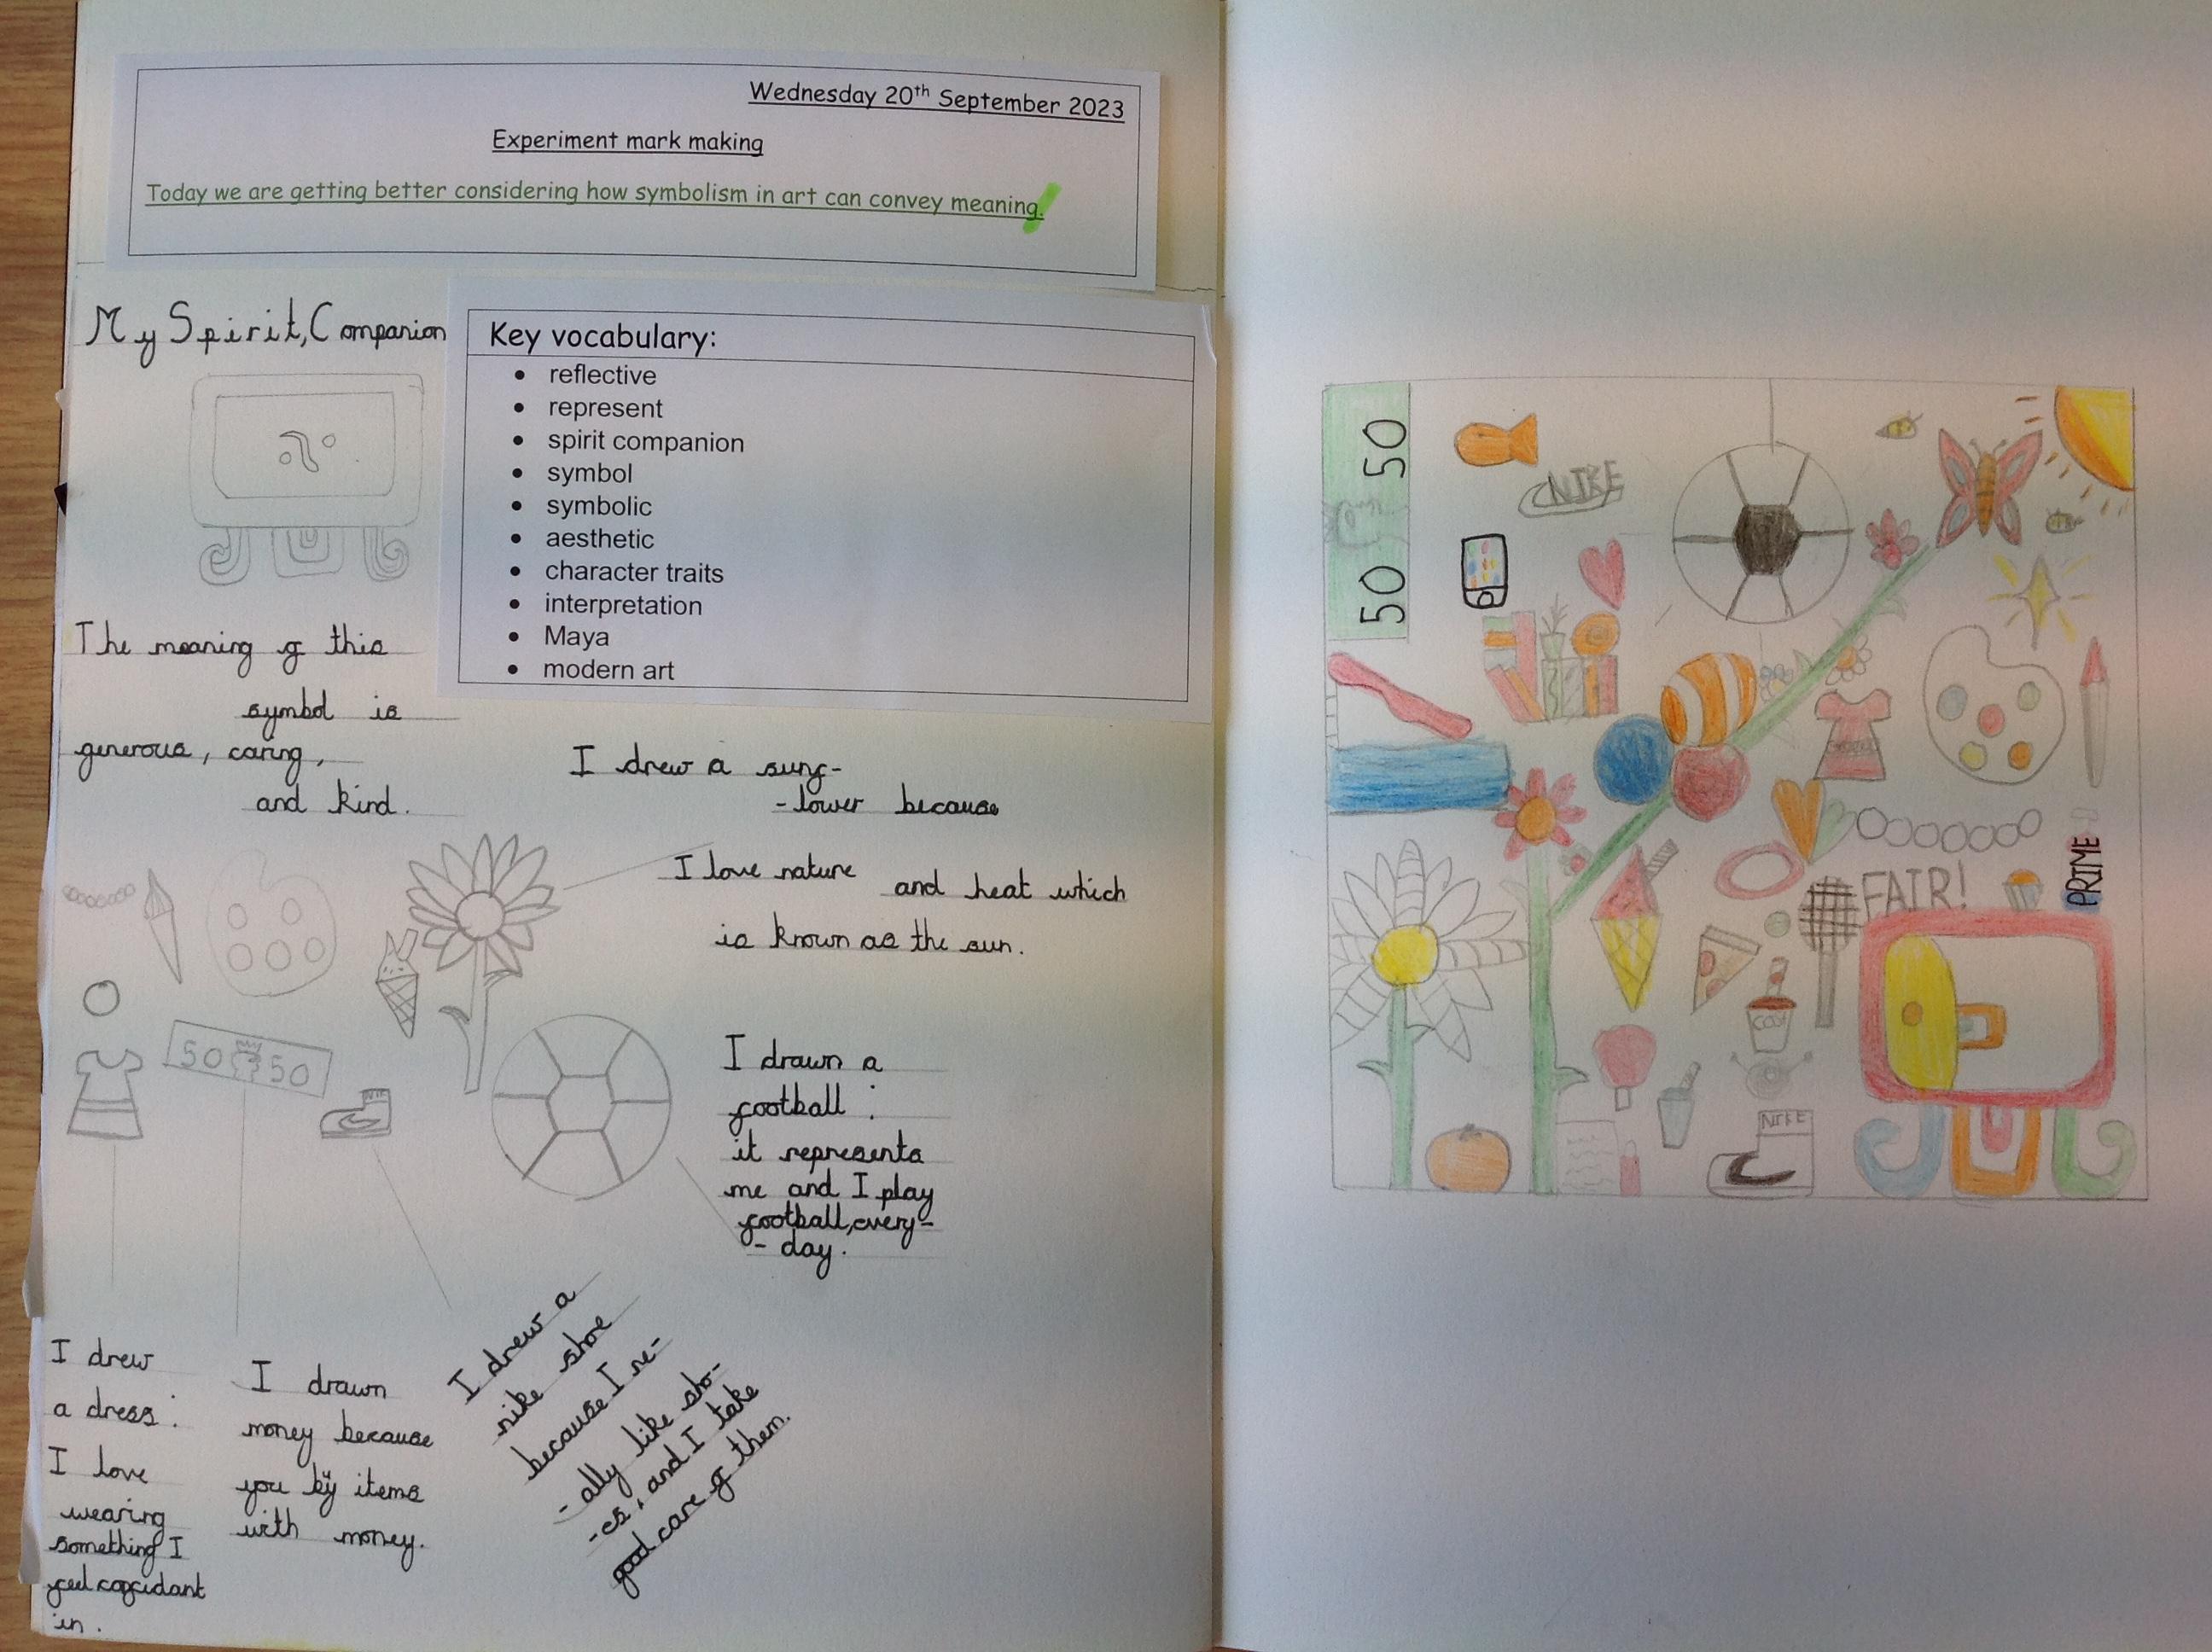 Wednesday 20th September 2023
Experiment mark making
Today we are getting better considering how symbolism in art can convey meaning.
My Spirit, Companion
Key vocabulary:
• reflective
• represent
• spirit companion
• symbol
• symbolic
• aesthetic
• character traits
• interpretation
• Maya
• modern art
The meaning of this
symbol is
generous, caring,
and kind.
I drew a sunf-
-lower because
I love nature and heat which
is known as the sun.
50 50
NIKE
I drawn a
football :
it represents
me and I play
football, every-
- day.
I drew
a dress :
I love
wearing
something I
feel cofcidant
in.
I drawn
money because
you by items
with money.
I drew a
nike shoe
because I re-
-ally like sho-
-es, and I take
good care of them.
50 50
NIKE
PRIME
FAIR!
NIKE